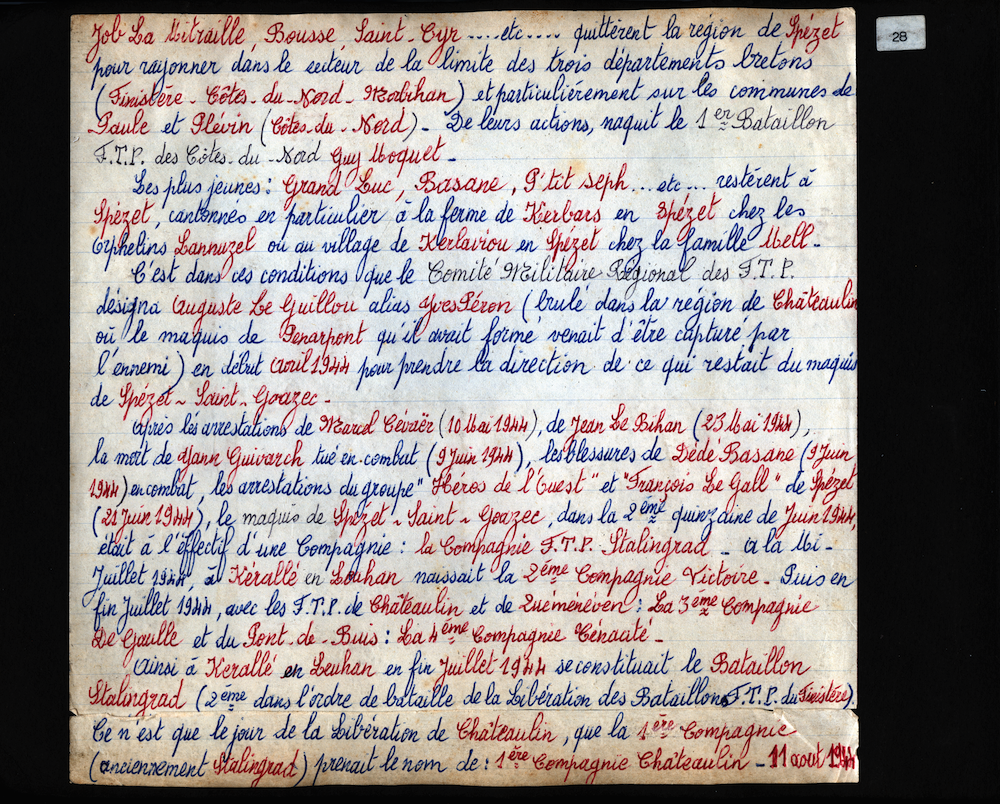 Job La Mitraille, Bousse, Saint-Cyr ....etc.... quittèrent la région de Spézet
pour rayonner dans le secteur de la limite des trois départements bretons
(Finistère - Côtes-du-Nord - Morbihan) et particulièrement sur les communes de
Paule et Plévin (Côtes-du-Nord) - De leurs actions, naquit le 1er Bataillon
F.T.P. des Côtes-du-Nord Guy Moquet -
Les plus jeunes : Grand Luc, Basane, P'tit seph...etc... restèrent à
Spézet, cantonnés en particulier à la ferme de Kerbars en Spézet chez les
Orphelins Lannuzel ou au village de Kerlaviou en Spézet chez la famille Mell -
C'est dans ces conditions que le Comité Militaire Régional des F.T.P.
désigna Auguste Le Guillou alias Yves Péron (brulé dans la région de Châteaulin
où le maquis de Penarpont qu'il avait formé venait d'être capturé par
l'ennemi) en début avril 1944 pour prendre la direction de ce qui restait du maquis
de Spézet - Saint-Goazec -
Après les arrestations de Marcel Cévaër (10 Mai 1944), de Jean Le Bihan (23 Mai 1944),
la mort de Yann Guivarch tué en combat (9 Juin 1944), les blessures de Dédé Basane (9 Juin
1944) en combat, les arrestations du groupe "Héros de l'Ouest" et "François Le Gall" de Spézet
(21 Juin 1944), le maquis de Spézet - Saint - Goazec, dans la 2ème quinzaine de Juin 1944,
était à l'éffectif d'une Compagnie : la Compagnie F.T.P. Stalingrad - A la Mi-
Juillet 1944, à Kérallé en Leuhan naissait la 2ème Compagnie Victoire - Puis en
fin Juillet 1944, avec les F.T.P. de Châteaulin et de Quéménéven : La 3ème Compagnie
De Gaulle et du Pont-de-Buis : La 4ème Compagnie Ténacité -
Ainsi à Kerallé en Leuhan en fin Juillet 1944 se constituait le Bataillon
Stalingrad (2ème dans l'ordre de bataille de la Libération des Bataillons F.T.P. du Finistère)
Ce n'est que le jour de la Libération de Châteaulin, que la 1ère Compagnie
(anciennement Stalingrad) prenait le nom de : 1ère Compagnie Châteaulin - 11 aout 1944
28